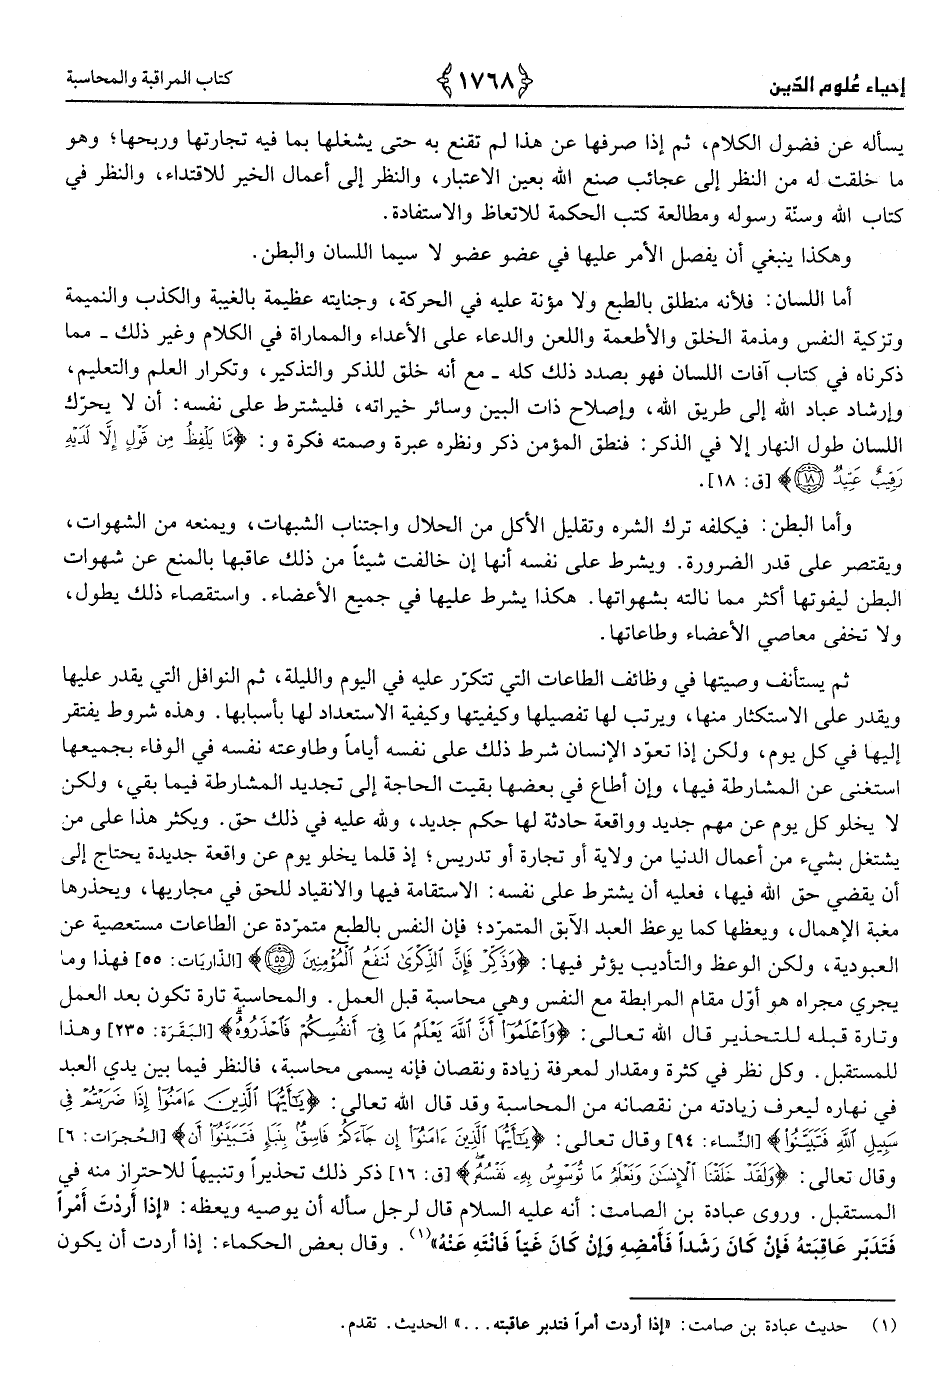 إحياء عُلوم الدّين ﴿١٧٦٨﴾ كتاب المراقبة والمحاسبة
يسأله عن فضول الكلام، ثم إذا صرفها عن هذا لم تقنع به حتى يشغلها بما فيه تجارتها وربحها؛ وهو
ما خلقت له من النظر إلى عجائب صنع الله بعين الاعتبار، والنظر إلى أعمال الخير للاقتداء، والنظر في
كتاب الله وسنّة رسوله ومطالعة كتب الحكمة للاتعاظ والاستفادة.
وهكذا ينبغي أن يفصل الأمر عليها في عضو عضو لا سيما اللسان والبطن.
أما اللسان: فلأنه منطلق بالطبع ولا مؤنة عليه في الحركة، وجنايته عظيمة بالغيبة والكذب والنميمة
وتزكية النفس ومذمة الخلق والأطعمة واللعن والدعاء على الأعداء والمماراة في الكلام وغير ذلك ـ مما
ذكرناه في كتاب آفات اللسان فهو بصدد ذلك كله ـ مع أنه خلق للذكر والتذكير، وتكرار العلم والتعليم،
وإرشاد عباد الله إلى طريق الله، وإصلاح ذات البين وسائر خيراته، فليشترط على نفسه: أن لا يحرّك
اللسان طول النهار إلا في الذكر: فنطق المؤمن ذكر ونظره عبرة وصمته فكرة و: ﴿مَّا يَلْفِظُ مِن قَوْلٍ إِلَّا لَدَيْهِ
رَقِيبٌ عَتِيدٌ ﴿١٨﴾﴾ [ق: ١٨].
وأما البطن: فيكلفه ترك الشره وتقليل الأكل من الحلال واجتناب الشبهات، ويمنعه من الشهوات،
ويقتصر على قدر الضرورة. ويشرط على نفسه أنها إن خالفت شيئاً من ذلك عاقبها بالمنع عن شهوات
البطن ليفوتها أكثر مما نالته بشهواتها. هكذا يشرط عليها في جميع الأعضاء. واستقصاء ذلك يطول،
ولا تخفى معاصي الأعضاء وطاعاتها.
ثم يستأنف وصيتها في وظائف الطاعات التي تتكرّر عليه في اليوم والليلة، ثم النوافل التي يقدر عليها
ويقدر على الاستكثار منها، ويرتب لها تفصيلها وكيفيتها وكيفية الاستعداد لها بأسبابها. وهذه شروط يفتقر
إليها في كل يوم، ولكن إذا تعوّد الإنسان شرط ذلك على نفسه أياماً وطاوعته نفسه في الوفاء بجميعها
استغنى عن المشارطة فيها، وإن أطاع في بعضها بقيت الحاجة إلى تجديد المشارطة فيما بقي، ولكن
لا يخلو كل يوم عن مهم جديد وواقعة حادثة لها حكم جديد، ولله عليه في ذلك حق. ويكثر هذا على من
يشتغل بشيء من أعمال الدنيا من ولاية أو تجارة أو تدريس؛ إذ قلما يخلو يوم عن واقعة جديدة يحتاج إلى
أن يقضي حق الله فيها، فعليه أن يشترط على نفسه: الاستقامة فيها والانقياد للحق في مجاريها، ويحذرها
مغبة الإهمال، ويعظها كما يوعظ العبد الآبق المتمرّد؛ فإن النفس بالطبع متمرّدة عن الطاعات مستعصية عن
العبودية، ولكن الوعظ والتأديب يؤثر فيها: ﴿وَذَكِّرْ فَإِنَّ الذِّكْرَىٰ تَنفَعُ الْمُؤْمِنِينَ ﴿٥٥﴾﴾ [الذّاريَات: ٥٥] فهذا وما
يجري مجراه هو أوّل مقام المرابطة مع النفس وهي محاسبة قبل العمل. والمحاسبة تارة تكون بعد العمل
وتارة قبله للتحذير قال الله تعالى: ﴿وَاعْلَمُوا أَنَّ اللَّهَ يَعْلَمُ مَا فِي أَنفُسِكُمْ فَاحْذَرُوهُ﴾ [البَقَرَة: ٢٣٥] وهذا
للمستقبل. وكل نظر في كثرة ومقدار لمعرفة زيادة ونقصان فإنه يسمى محاسبة، فالنظر فيما بين يدي العبد
في نهاره ليعرف زيادته من نقصانه من المحاسبة وقد قال الله تعالى: ﴿يَا أَيُّهَا الَّذِينَ ءَامَنُوا إِذَا ضَرَبْتُمْ فِي
سَبِيلِ اللَّهِ فَتَبَيَّنُوا﴾ [النِّساء: ٩٤] وقال تعالى: ﴿يَا أَيُّهَا الَّذِينَ ءَامَنُوا إِن جَاءَكُمْ فَاسِقٌ بِنَبَإٍ فَتَبَيَّنُوا أَن﴾ [الحُجرَات: ٦]
وقال تعالى: ﴿وَلَقَدْ خَلَقْنَا الْإِنسَانَ وَنَعْلَمُ مَا تُوَسْوِسُ بِهِ نَفْسُهُ﴾ [ق: ١٦] ذكر ذلك تحذيراً وتنبيهاً للاحتراز منه في
المستقبل. وروى عبادة بن الصامت: أنه عليه السلام قال لرجل سأله أن يوصيه ويعظه: «إذا أَرَدْتَ أَمْراً
فَتَدَبّر عَاقِبَتهُ فَإِنْ كَانَ رَشَداً فَأَمْضِهِ وَإِنْ كَانَ غَيّاً فَانْتَهِ عَنْهُ»(١). وقال بعض الحكماء: إذا أردت أن يكون
(١) حديث عبادة بن صامت: «إذا أردت أمراً فتدبر عاقبته...» الحديث. تقدم.